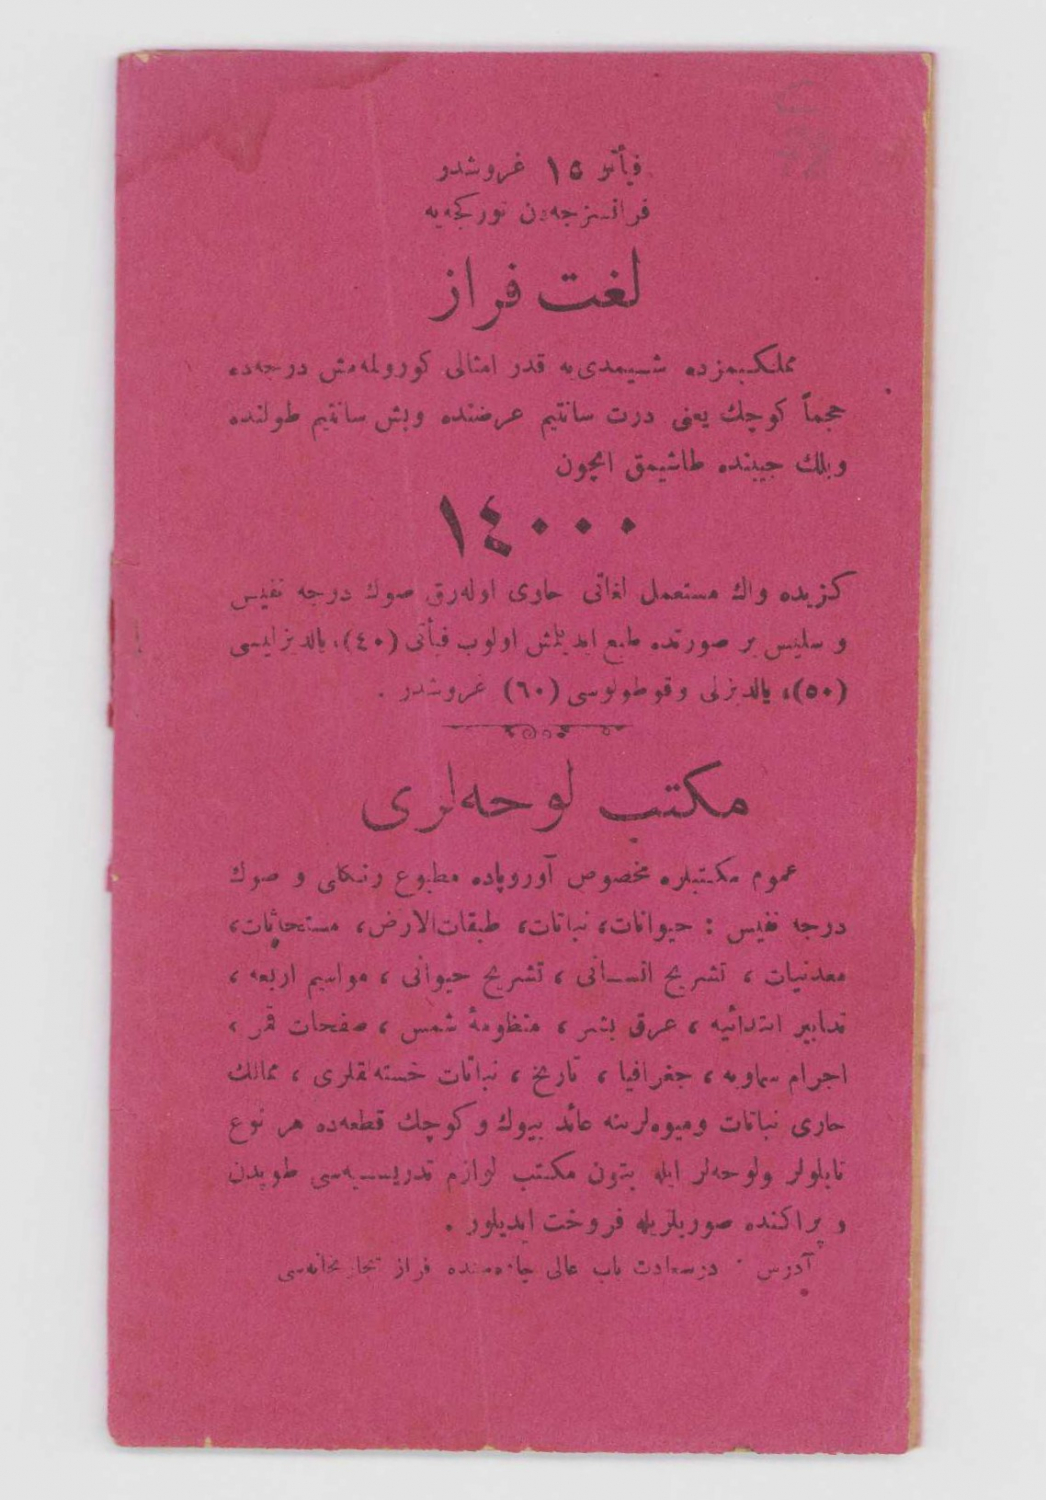 فیأتی ١٥ غروشدر
فرانسزجه‌دن تورکجه‌یه
لغت فراز
مملکتمزده شیمدی‌یه قدر امثالی کورولمه‌مش درجه‌ده
حجماً کوچك یعنی درت سانتیم عرضنده وبش سانتیم طولنده
ویلك جیبنده طاشیمق ایچون
١٤٠٠٠
کزیده واك مستعمل لغاتی حاوی اوله‌رق صوك درجه نفیس
و سلیس بر صورتده طبع ایدیلمش اولوب فیأتی (٤٠)، یالدیزلیسی
(٥٠)، یالدیزلی وقوطولوسی (٦٠) غروشدر .
مکتب لوحه‌لری
عموم مکتبلره مخصوص آوروپاده مطبوع رنکلی و صوك
درجه نفیس : حیوانات، نباتات، طبقات‌الارض، مستحاثات،
معدنیات ، تشریح انسانی ، تشریح حیوانی ، مواسم اربعه ،
تدابیر ابتدائیه ، عرق بشر ، منظومهٔ شمس ، صفحات قمر ،
اجرام سماویه ، جغرافیا ، تاریخ ، نباتات خسته‌لقلری ، ممالك
حاری نباتات ومیوه‌لرینه عائد بیوك و کوچك قطعه‌ده هر نوع
تابلولر ولوحه‌لر ایله بتون مکتب لوازم تدریسیه‌سی طوپدن
و پراکنده صورتلریله فروخت ایدیلور .
آدرس : درسعادت باب عالی جاده‌سنده فراز تجارتخانه‌سی